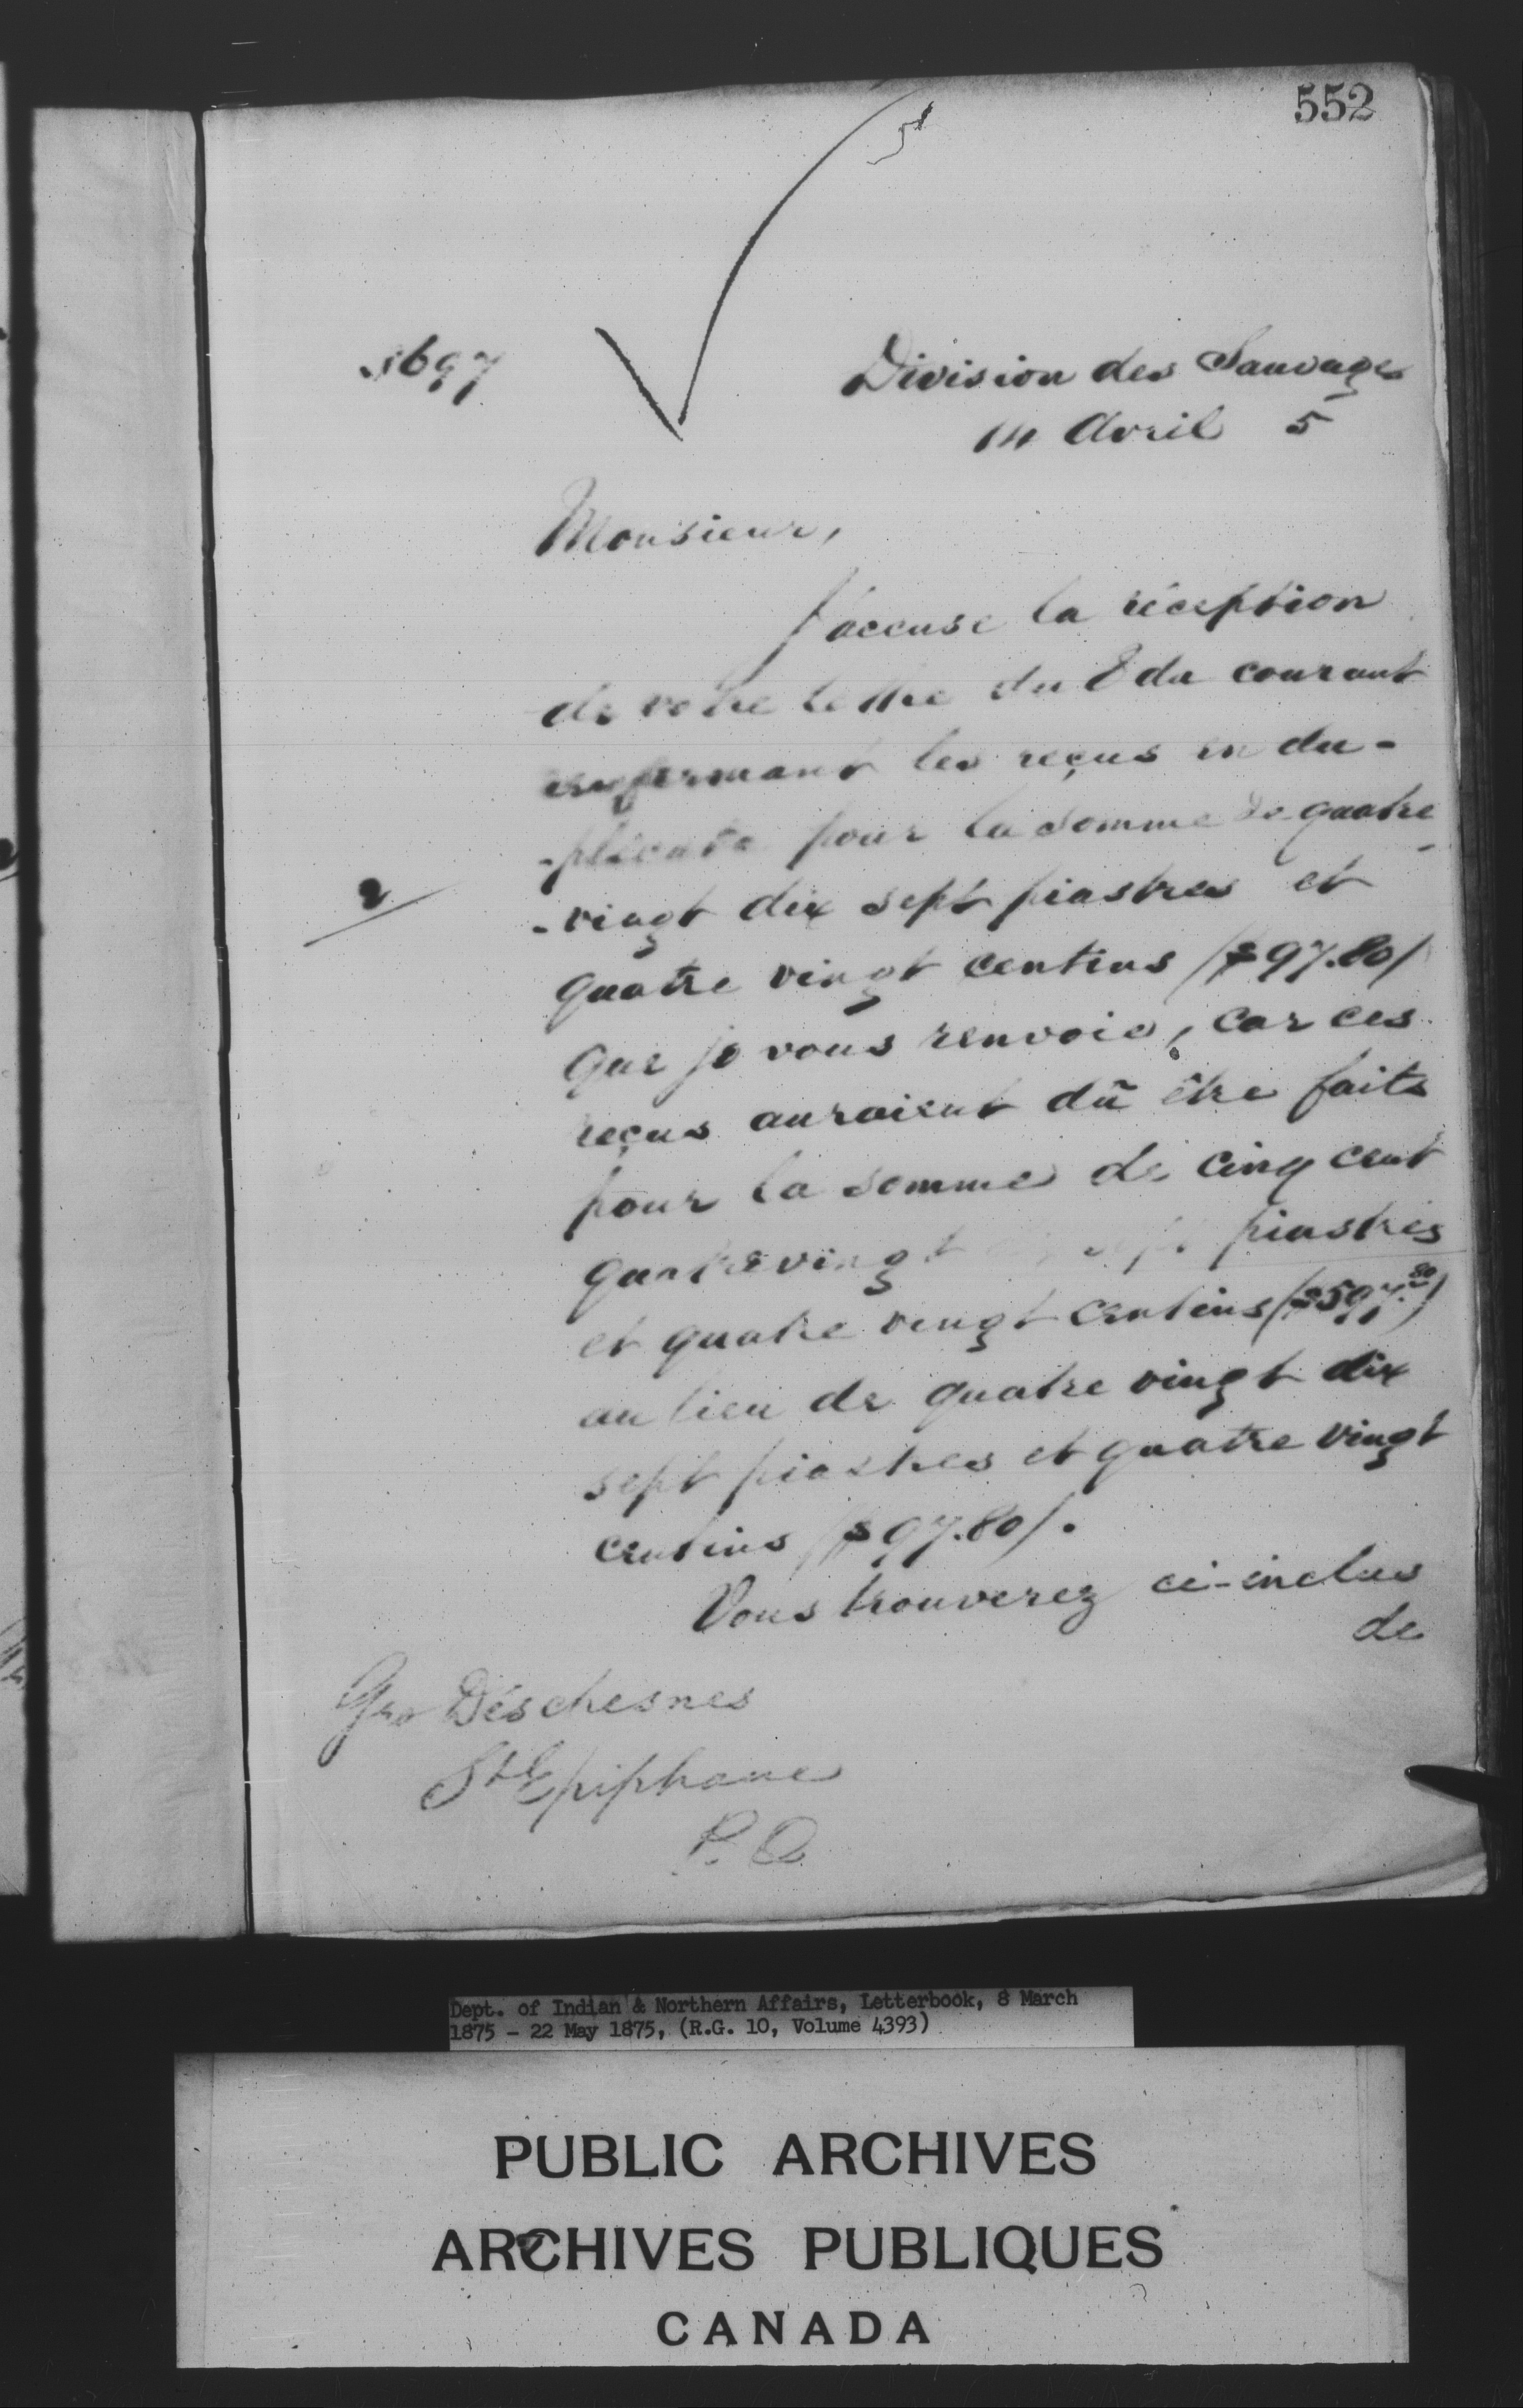 552
5697
Division des Sauvages
14 Avril 5
Monsieur,
J'accuse la réception
de votre lettre du 8 du courant
renfermant les reçus en du-
-plicata pour la somme de quatre-
2
-vingt dix sept piastres et
quatre vingt centins ($97.80)
que je vous renvoie, car ces
reçus auraient dû être faits
pour la somme de cinq cent
quatrevingt piastres
et quatre vingt centins ($597.80)
au lieu de quatre vingt dix
sept piastres et quatre vingt
centins ($97.80).
Vous trouverez ci-inclus
de
Geo Déschesnes
St Epiphane
P.Q
Dept. of Indian & Northern Affairs, Letterbook, 8 March
1875 - 22 May 1875, (R.G. 10, Volume 4393)
PUBLIC ARCHIVES
ARCHIVES PUBLIQUES
CANADA